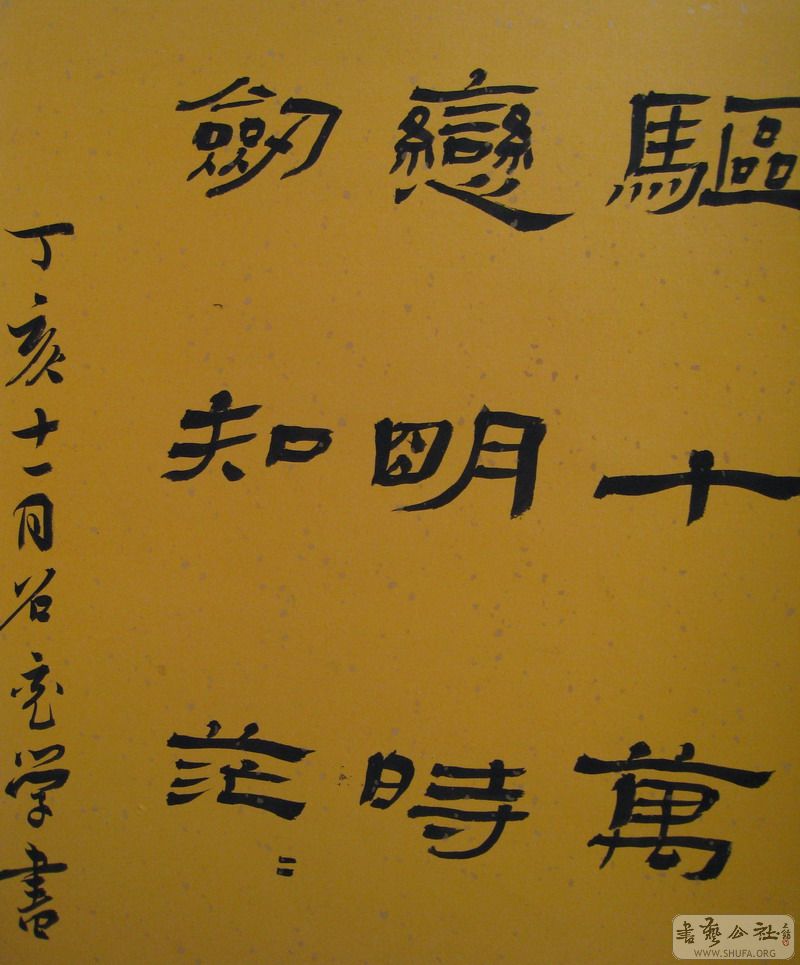 驅十萬
戀明時
劒知茫〻
丁亥十一月谷亮学書
書藝公社
WWW.SHUFA.ORG